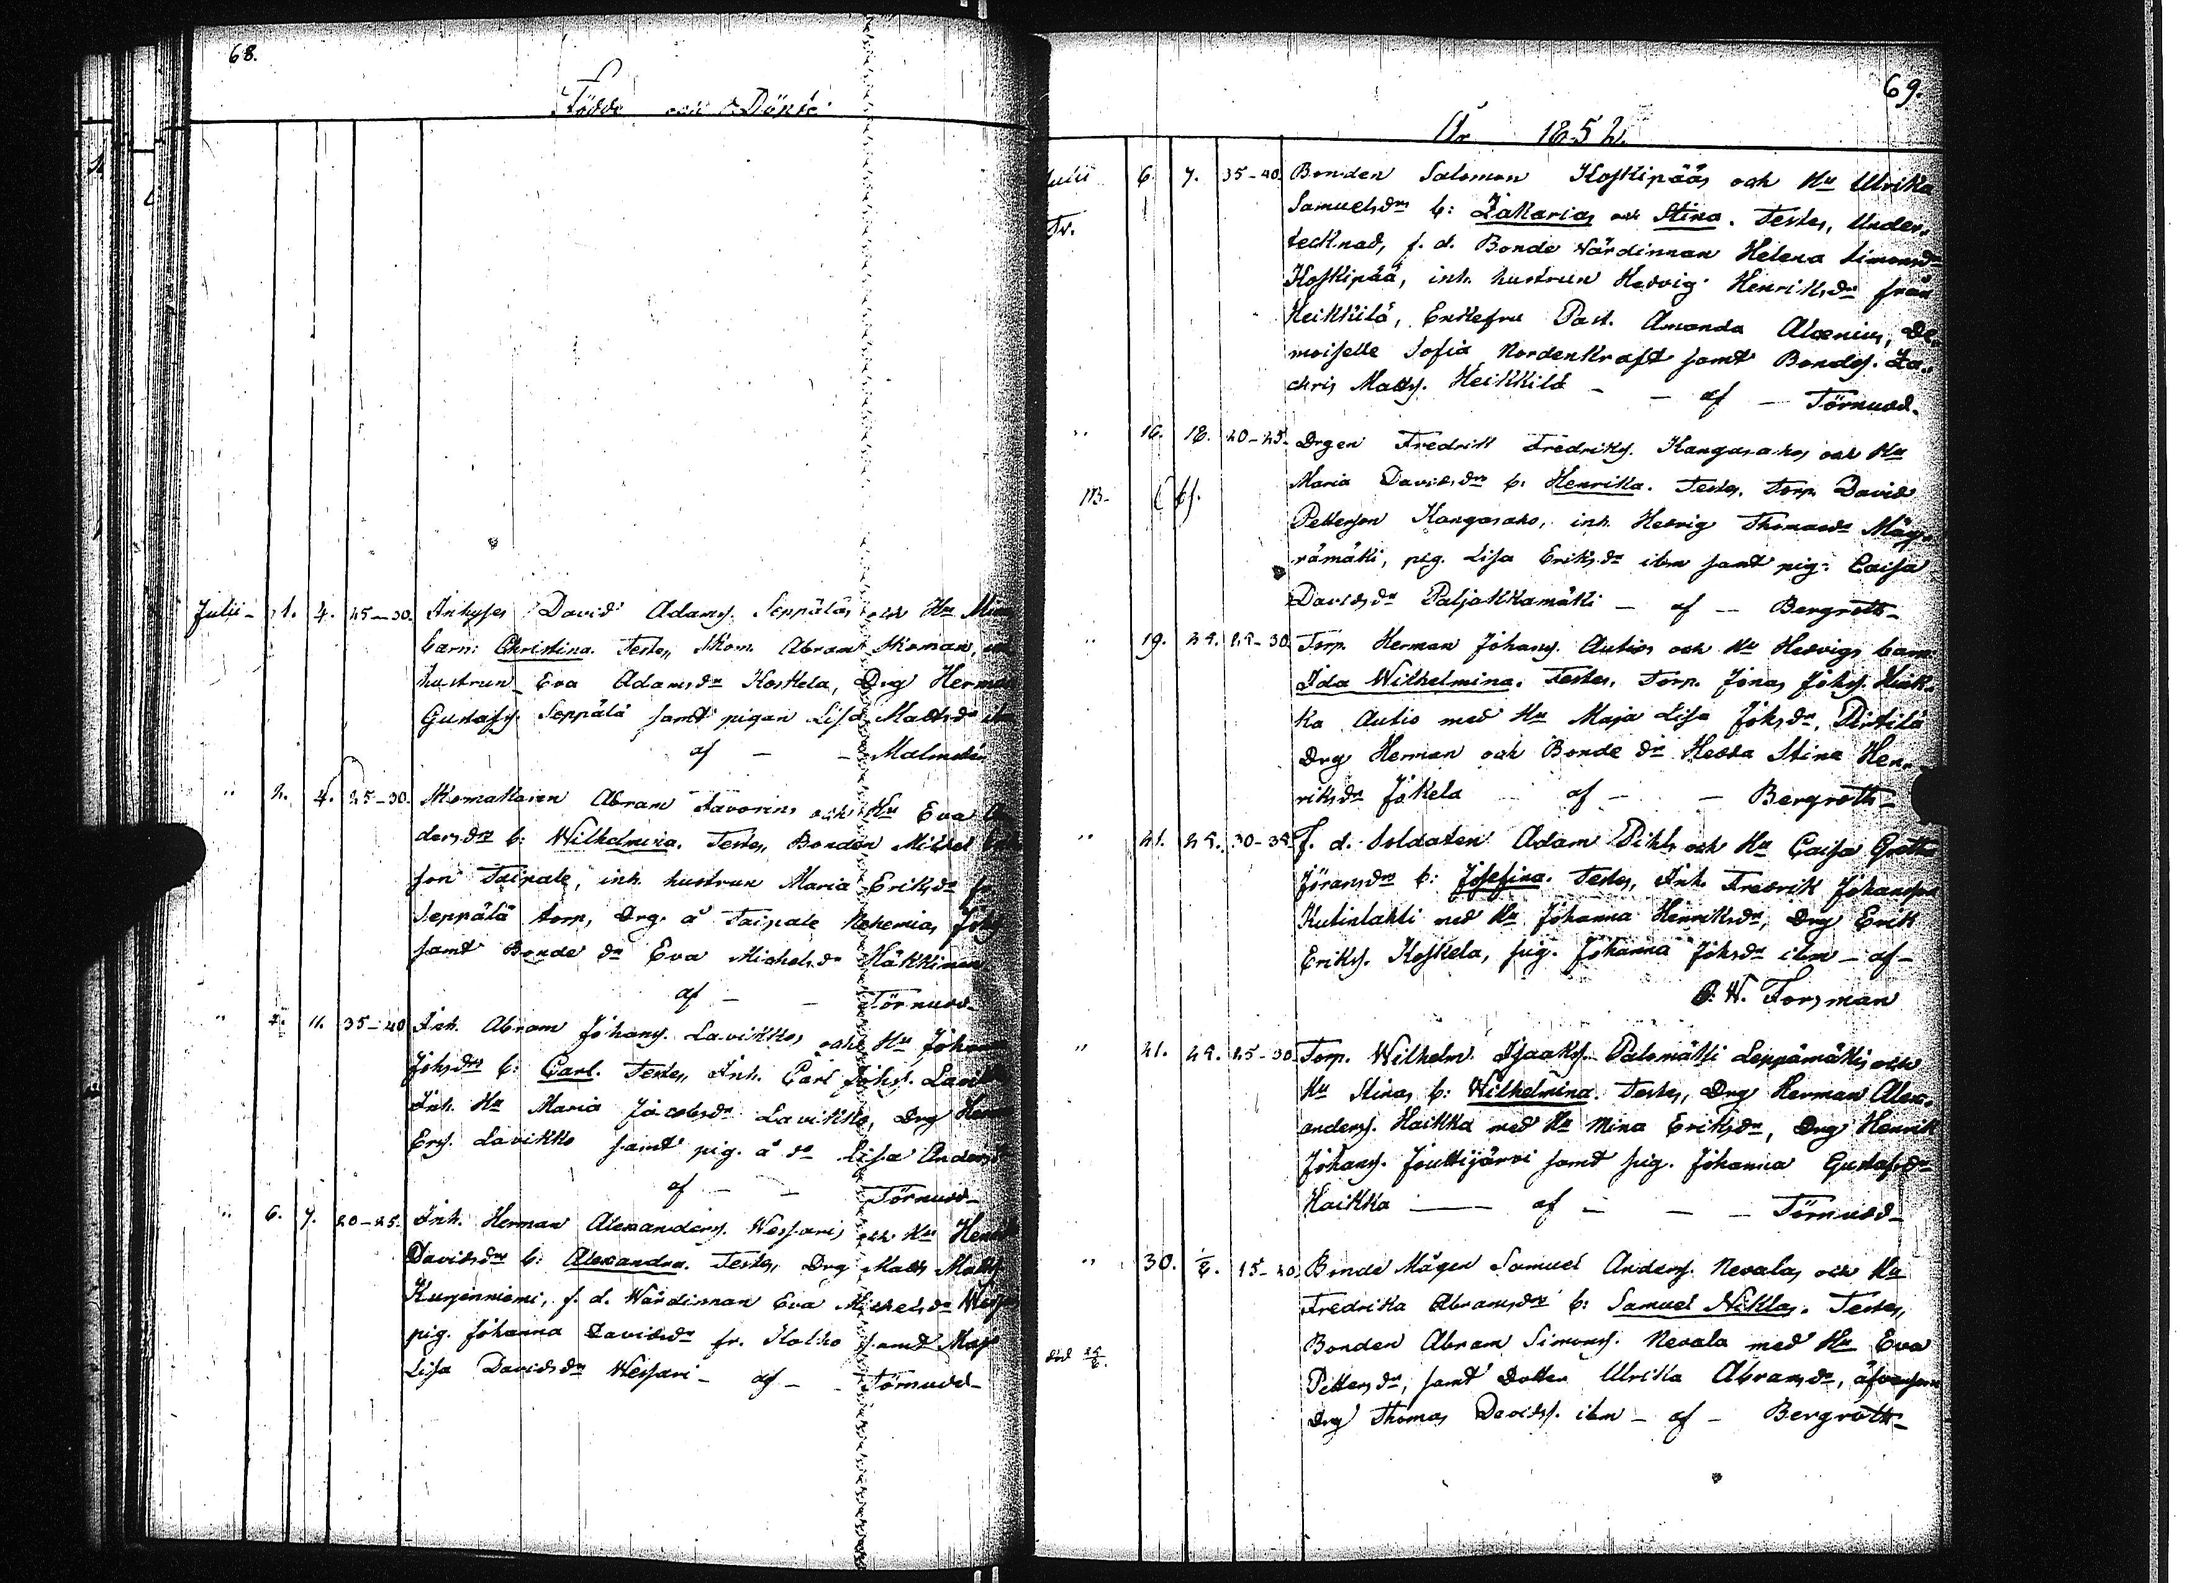 68.
Födde och Döpte
Julii - 1. 4. 25-30. Inhyses David Adamss. Seppäläs och Hu Mina
barn: Christina. Testes, Skom. Abram Skoman,
hustrun Eva Adamsdr Koskela, Drg Herman
Gustafss. Seppälä samt pigan Lisa Mattsdr ibm
af - - Malmdén
" 2. 4. 25-30. Skomakaren Abram Favorins och Hu Eva
dersdrs b: Wilhelmina. Testes, Bonden Mickel
son Taipale, inh. hustrun Maria Eriksdr fr.
Seppälä torp, Drg. å Taipale Nehemias Johss
samt Bonde dr Eva Michelsdr Häkkinen
af - - Törnudd
" 2. 11. 35-40 Inh. Abram Johanss. Lavikkos och Hu Johanna
Johsdrs b: Carl. Testes, Inh. Carl Johss. Lavikko
Inh. Hu Maria Jacobsdr Lavikko, Drg Henr
Erss. Lavikko samt pig. å dr Lisa Andersdr
af - - Törnudd
" 6. 7. 20-25. Inh. Herman Alexanderss. Wessaris och Hu
Davidsdrs b: Alexandra. Testes, Drg Matts Matts
Kurjenniemi, f. d. Wärdinnan Eva Michelsdr
pig. Johanna Davidsdr fr. Kolho samt Maj
Lisa Davidsdr Wessari - af - - Törnudd -
69.
År 1852.
Julii 6. 7. 35-40. Bonden Salomon Koskipääs och Hu Ulrika
Samuelsdrs b: Zakarias och Stina. Testes, Under-
Tv.
tecknad, f. d. Bonde Wärdinnan Helena Simonsdr
Koskipää, inh. hustrun Hedvig Henriksdr från
Heikkilä, Enkefru Past. Amanda Alcenius, De-
moiselle Sofia Nordenkraft samt Bondes. Za-
chris Mattss. Heikkilä - - af - Törnudd.
" 16. 18. 20-25. Drgen Fredrik Fredrikss. Kangasahos och Hu
Maria Davidsdrs b: Henrika. Testes, Torp. David
Petterson Kangasaho, inh. Hedvig Thomasdr Mäy-
rämäki, pig. Lisa Eriksdr ibm samt pig: Caisa
Davidsdr Paljakkamäki - af - Bergroth -
" 19. 24. 25-30 Torp. Herman Johanss. Autios och Hu Hedvigs barn
Ida Wilhelmina. Testes, Torp. Jonas Johss. Haik-
ka Autio med Hu Maja Lisa Johsdr, Pirtilä
Drg Herman och Bonde dr Hedda Stina Hen-
riksdr Jokela af - - Bergroth -
" 21. 25. 30-35 F. d. Soldaten Adam Pihls och Hu Caisa Greta
Jöransdrs b: Josefina. Testes, Inh. Fredrik Johansson
Kutinlahti med Hu Johanna Henriksdr, Drg Erik
Erikss. Koskela, pig. Johanna Johsdr ibm - af -
O. W. Forsman
" 21. 25. 25-30 Torp. Wilhelm Isaakss. Palomäki Leppämäkis och
Hu Stinas b: Wilhelmina. Testes, Drg Herman Alex-
anderss. Haikka med Hu Mina Eriksdr, Drg Henrik
Johanss. Jouttijärvi samt pig. Johanna Gustafsdr
Haikka - af - - - Törnudd -
" 30. 1/8. 15-20 Bonde Mågen Samuel Anderss. Nevalas och Hu
Fredrika Abramsdrs b: Samuel Niklas. Testes,
Bonden Abram Simonss. Nevala med Hu Eva
Pettersdr, samt Dotter Ulrika Abramsdr, äfvensom
Drg Thomas Davidss. ibm - af - Bergroth -